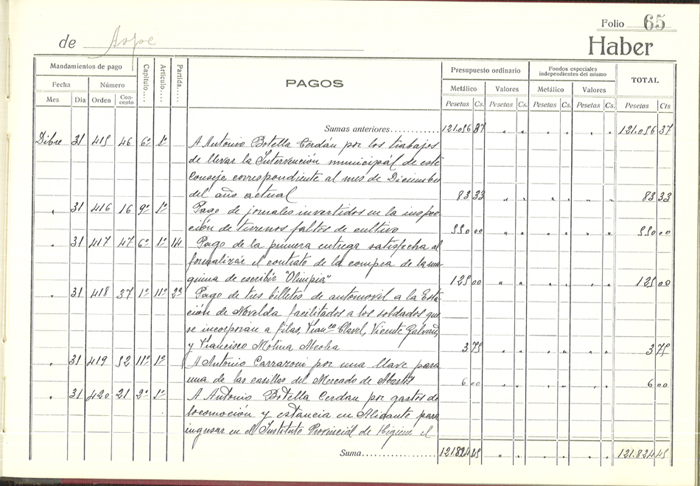 Folio 65
de Aspe
Haber
Mandamientos de pago
Fecha
Número
Mes
Dia
Orden
Concepto
Capítulo....
Artículo....
Partida....
PAGOS
Presupuesto ordinario
Metálico
Valores
Pesetas Cs.
Pesetas Cs.
Fondos especiales
independientes del mismo
Metálico
Valores
Pesetas Cs.
Pesetas Cs.
TOTAL
Pesetas Cts
Sumas anteriores 121.056 37 " " " " " " 121.056 37
Dibre 31 415 46 6º 1º A Antonio Botella Cerdán por los trabajos
de llevar la Intervención municipal de este
Consejo correspondiente al mes de Diciembre
del año actual 83 33 " " " " " " 83 33
" 31 416 16 9º 1º Pago de jornales invertidos en la inspec
ción de terrenos faltos de cultivo 550 00 " " " " " " 550 00
" 31 417 47 6º 1º 14 Pago de la primera entrega satisfecha al
formalizar el contrato de la compra de la ma
quina de escribir "Olimpia" 125 00 " " " " " " 125 00
" 31 418 37 1º 11º 2º Pago de tres billetes de automovil a la Esta
ción de Novelda facilitados a los soldados que
se incorporan a filas, Franco Clavel, Vicente
y Francisco Molina Mecha 3 75 " " " " " " 3 75
" 31 419 52 11º 1º A Antonio Carrazoni por una llave para
una de las casillas del Mercado de Abastos 6 00 " " " " " " 6 00
" 31 420 21 2º 1º A Antonio Botella Cerdan por gastos de
locomoción y estancia en Alicante para
ingresar en el Instituto Provincial de Higiene el
Suma 121.824 45 121.824 45